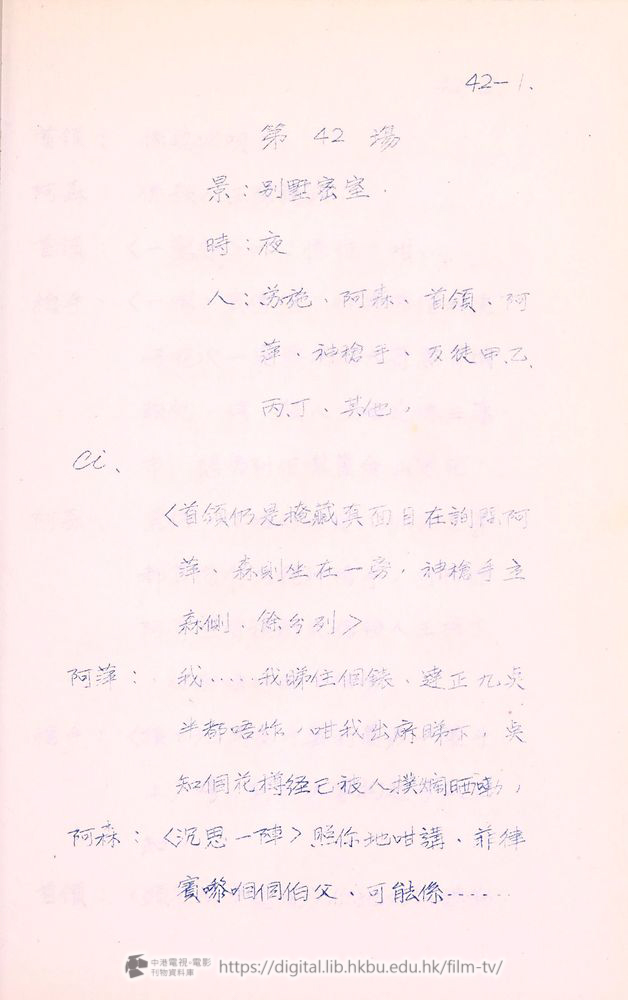 42-1.
第 42 場
景:別墅密室.
時:夜
人:芳施、阿森、首領、阿
萍、神槍手、歹徒甲乙
丙丁、其他,
Ci、
<首領仍是掩藏真面目在詢問阿
萍、森則坐在一旁,神槍手立
森側、餘分列>
阿萍: 我.....我睇住個錶、達正九點
半都唔炸,咁我出廳睇下,點
知個花樽經已被人撲爛晒嘞,
阿森:<沉思一陣>照你地咁講、菲律
賓嚟個個伯父、可能係......
中港電視·電影
刊物資料庫
https://digital.lib.hkbu.edu.hk/film-tv/